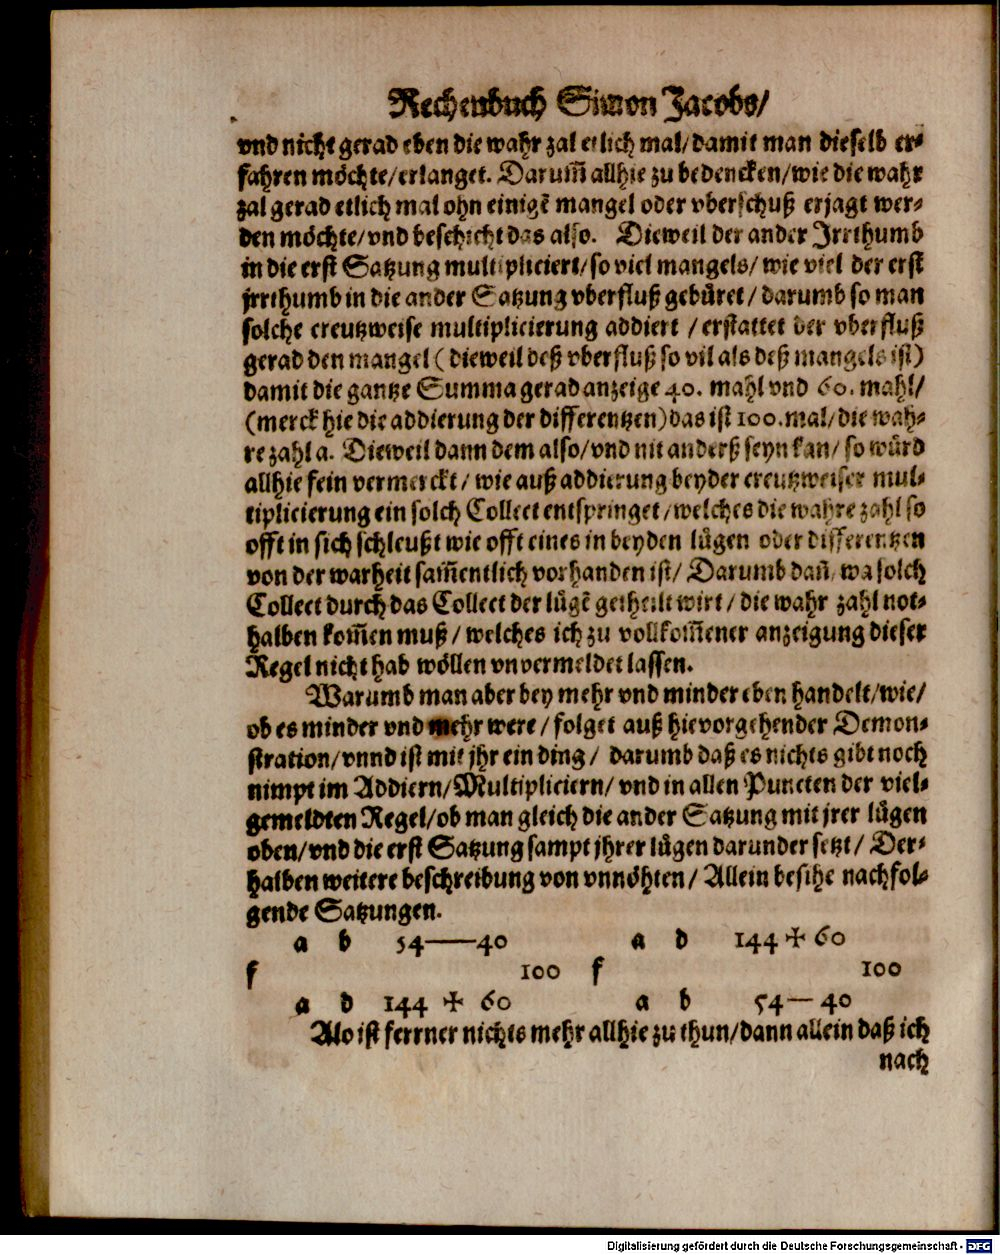 Rechenbuch Simon Jacobs/
vnd nicht gerad eben die wahr zal etlich mal/damit man dieselb er-
fahren möchte/erlanget. Darum̄ allhie zu bedencken/wie die wahr
zal gerad etlich mal ohn einigē mangel oder vberschuß erjagt wer-
den möchte/vnd beschicht das also. Dieweil der ander Irrthumb
in die erst Satzung multipliciert/so viel mangels/wie viel der erst
jrrthumb in die ander Satzung vberfluß gebüret/darumb so man
solche creutzweise multiplicierung addiert/erstattet der vberfluß
gerad den mangel (dieweil deß vberfluß so vil als deß mangels ist)
damit die gantze Summa gerad anzeige 40. mahl vnd 60. mahl/
(merck hie die addierung der differentzen) das ist 100. mal/die wah-
re zahl a. Dieweil dann dem also/vnd nit anderß seyn kan/so würd
allhie fein vermerckt/wie auß addierung beyder creutzweiser mul-
tiplicierung ein solch Collect entspringet/welches die wahre zahl so
offt in sich schleußt wie offt eines in beyden lügen oder differentzen
von der warheit sam̄entlich vorhanden ist/Darumb dan̄/wa solch
Collect durch das Collect der lügē getheilt wirt/die wahr zahl not-
halben kom̄en muß/welches ich zu vollkom̄ener anzeigung dieser
Regel nicht hab wöllen vnvermeldet lassen.
Warumb man aber bey mehr vnd minder eben handelt/wie/
ob es minder vnd mehr were/folget auß hievorgehender Demon-
stration/vnnd ist mit jhr ein ding/darumb daß es nichts gibt noch
nimpt im Addiern/Multipliciern/vnd in allen Puncten der viel-
gemeldten Regel/ob man gleich die ander Satzung mit jrer lügen
oben/vnd die erst Satzung sampt jhrer lügen darunder setzt/Der-
halben weitere beschreibung von vnnöhten/Allein besihe nachfol-
gende Satzungen.
a b 54——40 a d 144 ✠ 60
f 100 f 100
a d 144 ✠ 60 a b 54— 40
Also ist ferrner nichts mehr allhie zu thun/dann allein daß ich
nach
Digitalisierung gefördert durch die Deutsche Forschungsgemeinschaft - DFG